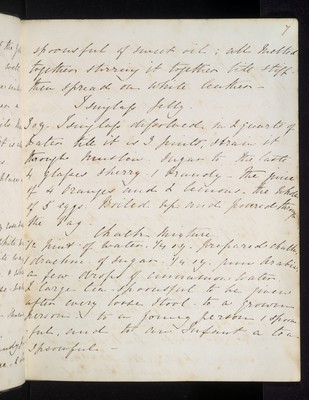 7
spoonsful of sweet oil; all melted
together stirring it together till stiff
then spread on white leather -
Isinglass Jelly.
3 oz. Isinglass dissolved in 2 quarts of
water till it is 3 pints, strain it
through muslin. Sugar to the taste
4 glasses sherry. 1 brandy - the juice
of 4 oranges and 2 lemons. the whole
of 5 eggs. Boiled up and poured thro
the bag
Chalk Mixture
1/2 pint of water. 1/4 oz. prepared chalk,
drachms of sugar. 1/4 oz. gum Arabic,
a few drops of cinnamon water
2 large tea-spoonsful to be given
after every loose stool to a grown
person. to a young person 1 spoon
ful, and to an Infant a tea
spoonful. -